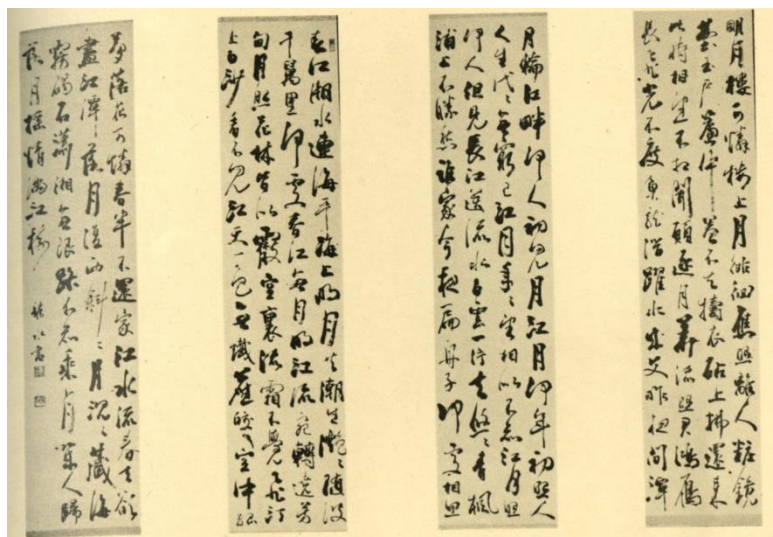 明月樓可憐樓上月徘徊應照離人粧鏡
臺玉戶簾中卷不去擣衣砧上拂還來
此時相望不相聞願逐月華流照君鴻雁
長飛光不度魚龍潛躍水成文昨夜閒潭
月輪江畔何人初見月江月何年初照人
人生代〻無窮已江月年〻望相似不知江月照
何人但見長江送流水白雲一片去悠〻青楓
浦上不勝愁誰家今夜扁舟子何處相思
春江潮水連海平海上明月共潮生灧〻隨波
千萬里何處春江無月明江流宛轉遶芳
甸月照花林皆似霰空裏流霜不覺飛汀
上白沙看不見江天一色無纖塵皎〻空中孤
夢落花可憐春半不還家江水流春去欲
盡江潭落月復西斜〻月沉〻藏海
霧碣石瀟湘無限路不知乘月幾人歸
落月搖情滿江樹